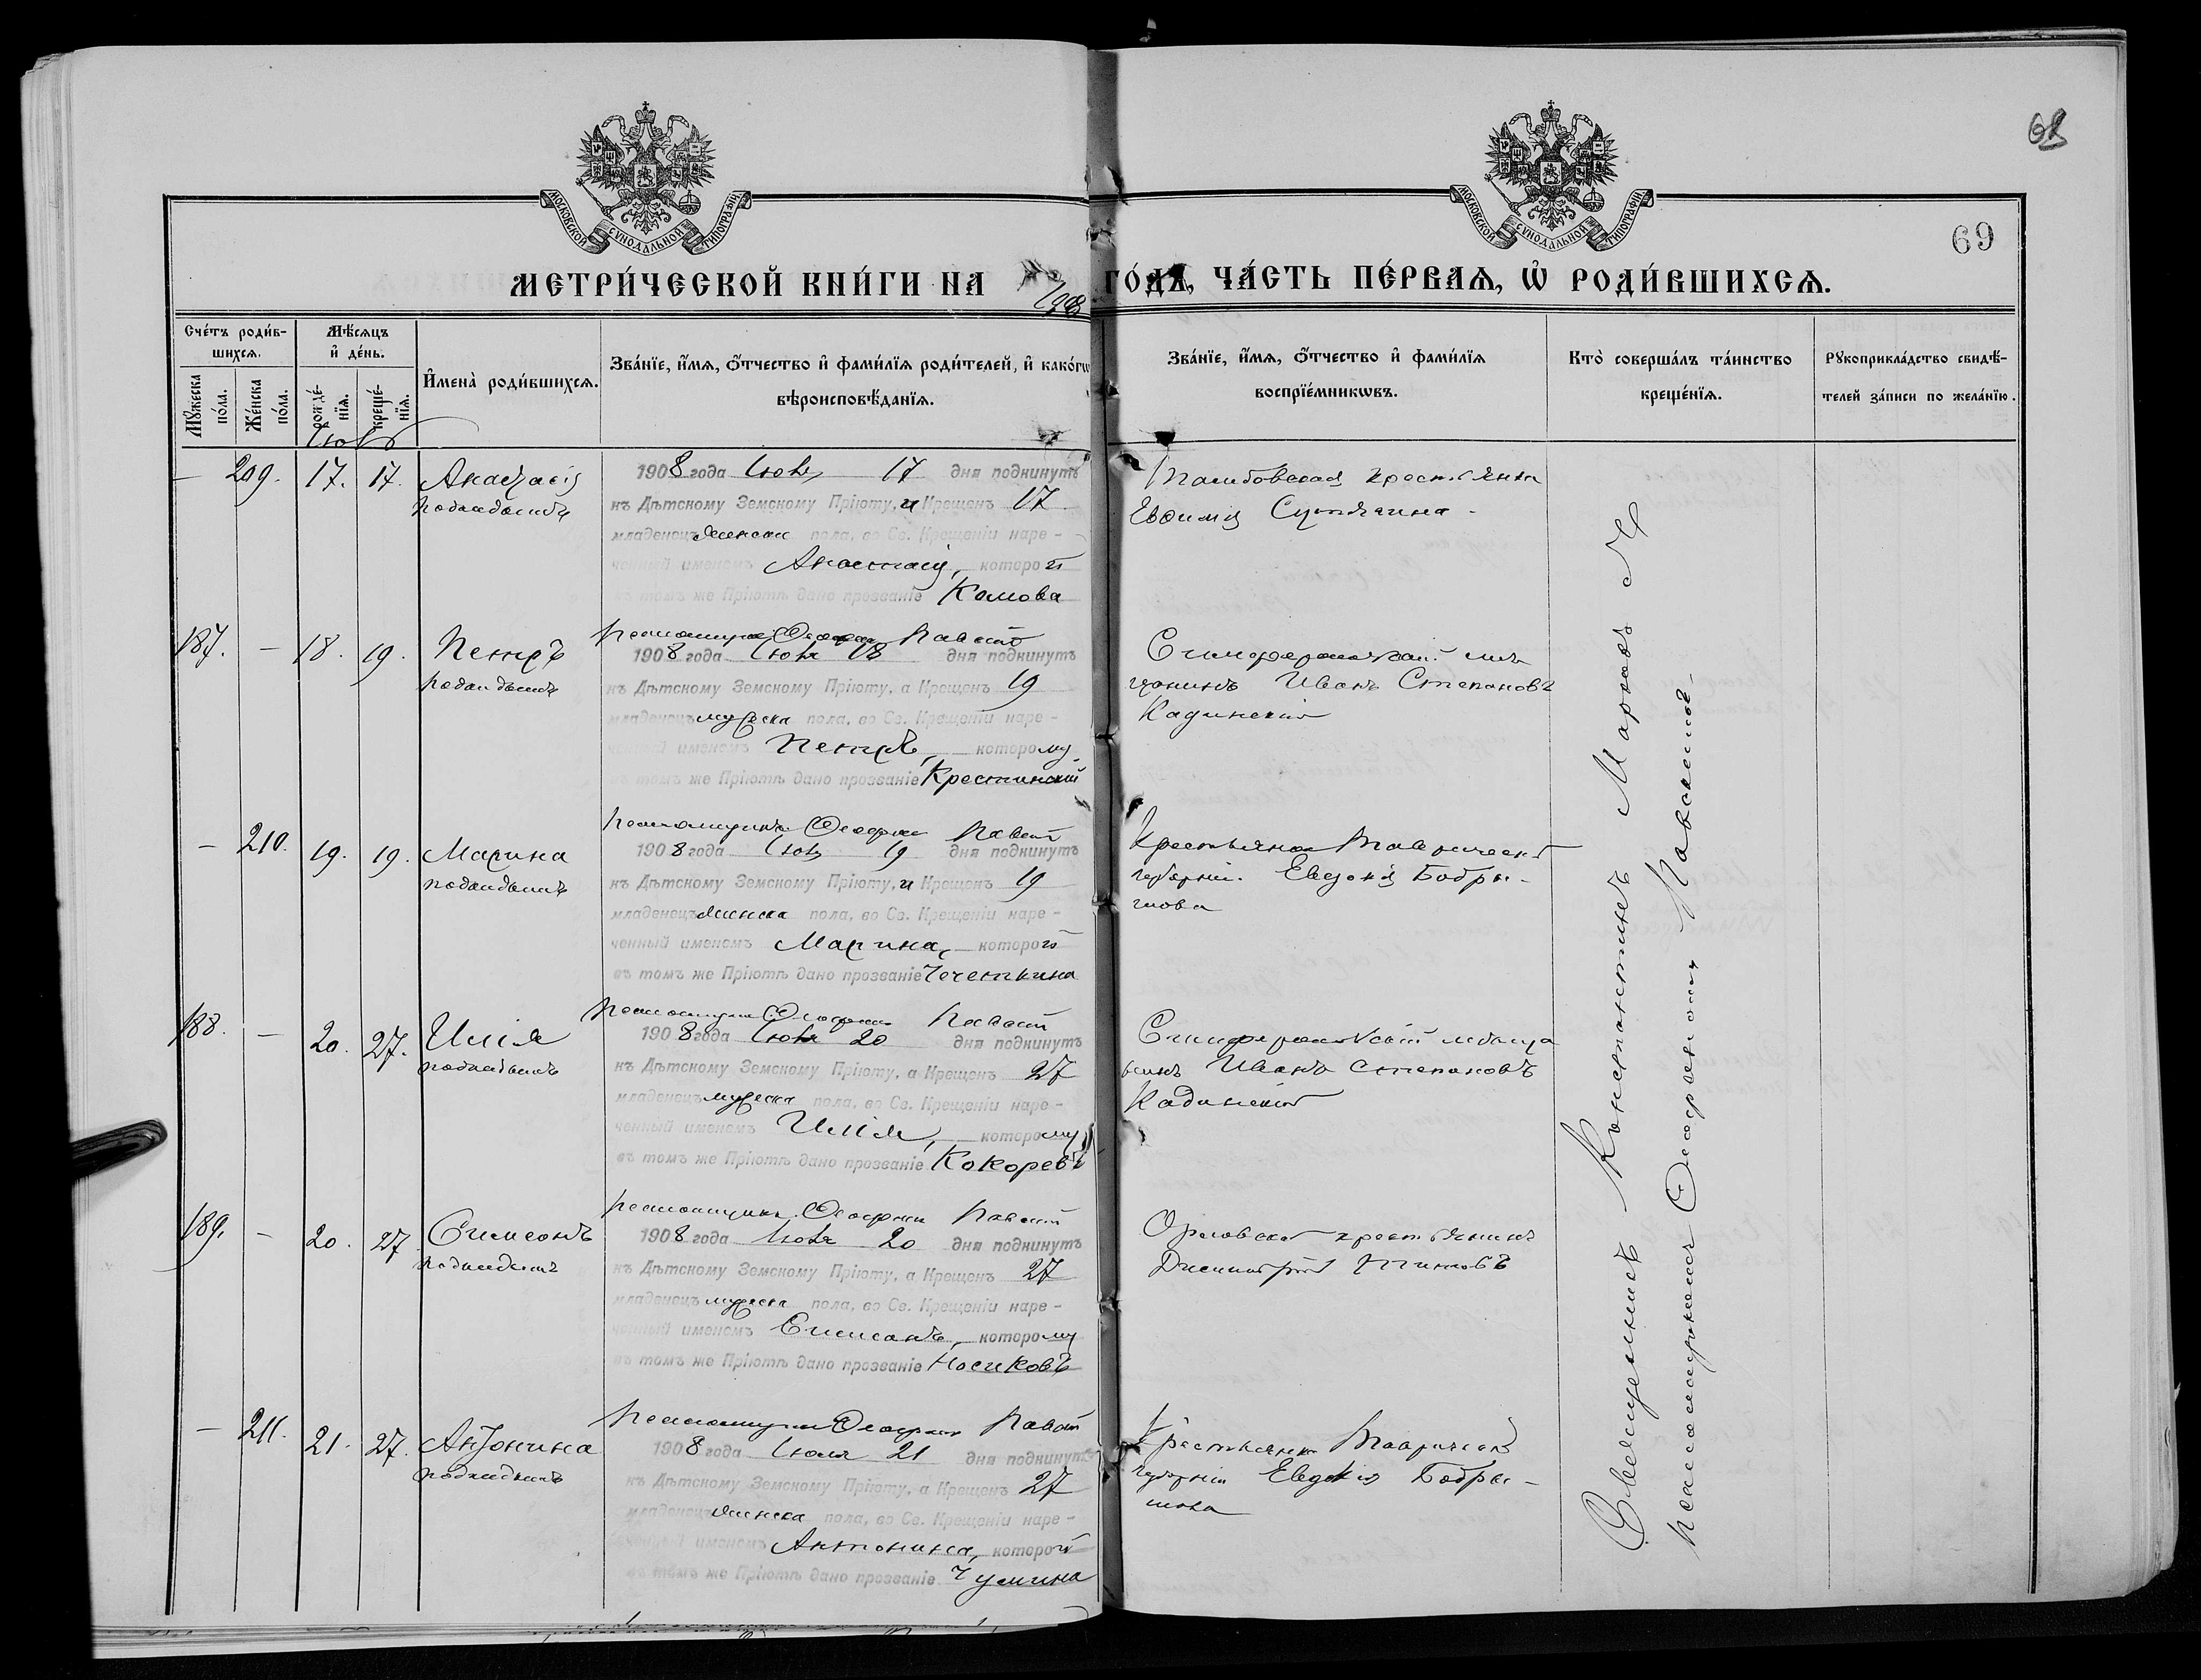 68
69
МОСКОВСКОЙ СѴНОДАЛЬНОЙ ТИПОГРАФІИ
МОСКОВСКОЙ СѴНОДАЛЬНОЙ ТИПОГРАФІИ
МЕТРИ́ЧЕСКОЙ КНИ́ГИ НА 1908 ГО́ДЪ, ЧА́СТЬ ПЕ́РВАЯ, Ѡ҆ РОДИ́ВШИХСЯ.
Сче́тъ роди́в-
шихся.
Мꙋ́жеска по́ла.
Же́нска по́ла.
Мѣ́сяцъ
и҆ де́нь.
рожде́-
нїѧ.
креще́-
нїѧ.
И҆мена̀ роди́вшихся.
Зва́нїе, и҆́мѧ, ѻ҆́тчество и҆ фами́лїѧ роди́телей, и҆ како́гѡ
вѣроисповѣ́данїѧ.
Зва́нїе, и҆́мѧ, ѻ҆́тчество и҆ фами́лїѧ
воспрїе́мникѡвъ.
Кто̀ соверша́лъ та́инство
креще́нїѧ.
Рꙋкоприкла́дство свидѣ́-
телей за́писи по жела́нїю.
Іюль
— 209. 17. 17. Анастасія
подкидышъ
1908 года Іюля 17 дня подкинутъ
къ Дѣтскому Земскому Пріюту, и Крещенъ 17
младенецъ женска пола, во Св. Крещеніи наре-
ченный именемъ Анастасія, которой
въ томъ же Пріютѣ дано прозваніе Комова
крестьянка
Евфимія
187. — 18. 19. Петръ
подкидышъ
Псаломщикъ Онофрій
1908 года Іюля 18 дня подкинутъ
къ Дѣтскому Земскому Пріюту, а Крещенъ 19
младенецъ мужеска пола, во Св. Крещеніи наре-
ченный именемъ Петръ, которому
въ томъ же Пріютѣ дано прозваніе Крестинскій
Симферопольскій мѣ
щанинъ Иванъ Степановъ
Кадинскій
— 210. 19. 19. Марина
подкидышъ
Псаломщикъ Онофрій
1908 года Іюля 19 дня подкинутъ
къ Дѣтскому Земскому Пріюту, и Крещенъ 19
младенецъ женска пола, во Св. Крещеніи наре-
ченный именемъ Марина, которой
въ томъ же Пріютѣ дано прозваніе Чечеткина
Крестьянка Таврической
губерніи Евдокія Бобры-
шова
188. — 20. 27. Илія
подкидышъ
Псаломщикъ Онофрій
1908 года Іюля 20 дня подкинутъ
къ Дѣтскому Земскому Пріюту, а Крещенъ 27
младенецъ мужеска пола, во Св. Крещеніи наре-
ченный именемъ Илія, которому
въ томъ же Пріютѣ дано прозваніе Кокоревъ
Симферопольскій мѣща
нинъ Иванъ Степановъ
Кадинскій
189. — 20. 27 Симеонъ
подкидышъ
Псаломщикъ Онофрій
1908 года Іюля 20 дня подкинутъ
къ Дѣтскому Земскому Пріюту, а Крещенъ 27
младенецъ мужеска пола, во Св. Крещеніи наре-
ченный именемъ Симеонъ, которому
въ томъ же Пріютѣ дано прозваніе Носиковъ
Орловскій крестьянинъ
Димитрій Титовъ
— 211. 21. 27. Антонина
подкидышъ
Псаломщикъ Онофрій
1908 года Іюля 21 дня подкинутъ
къ Дѣтскому Земскому Пріюту, а Крещенъ 27
младенецъ женска пола, во Св. Крещеніи наре-
ченный именемъ Антонина, которой
въ томъ же Пріютѣ дано прозваніе Чумина
Крестьянка Таврической
губерніи Евдокія Бобры-
шова
Священникъ Константинъ Марковъ
Псаломщикомъ Онофріемъ